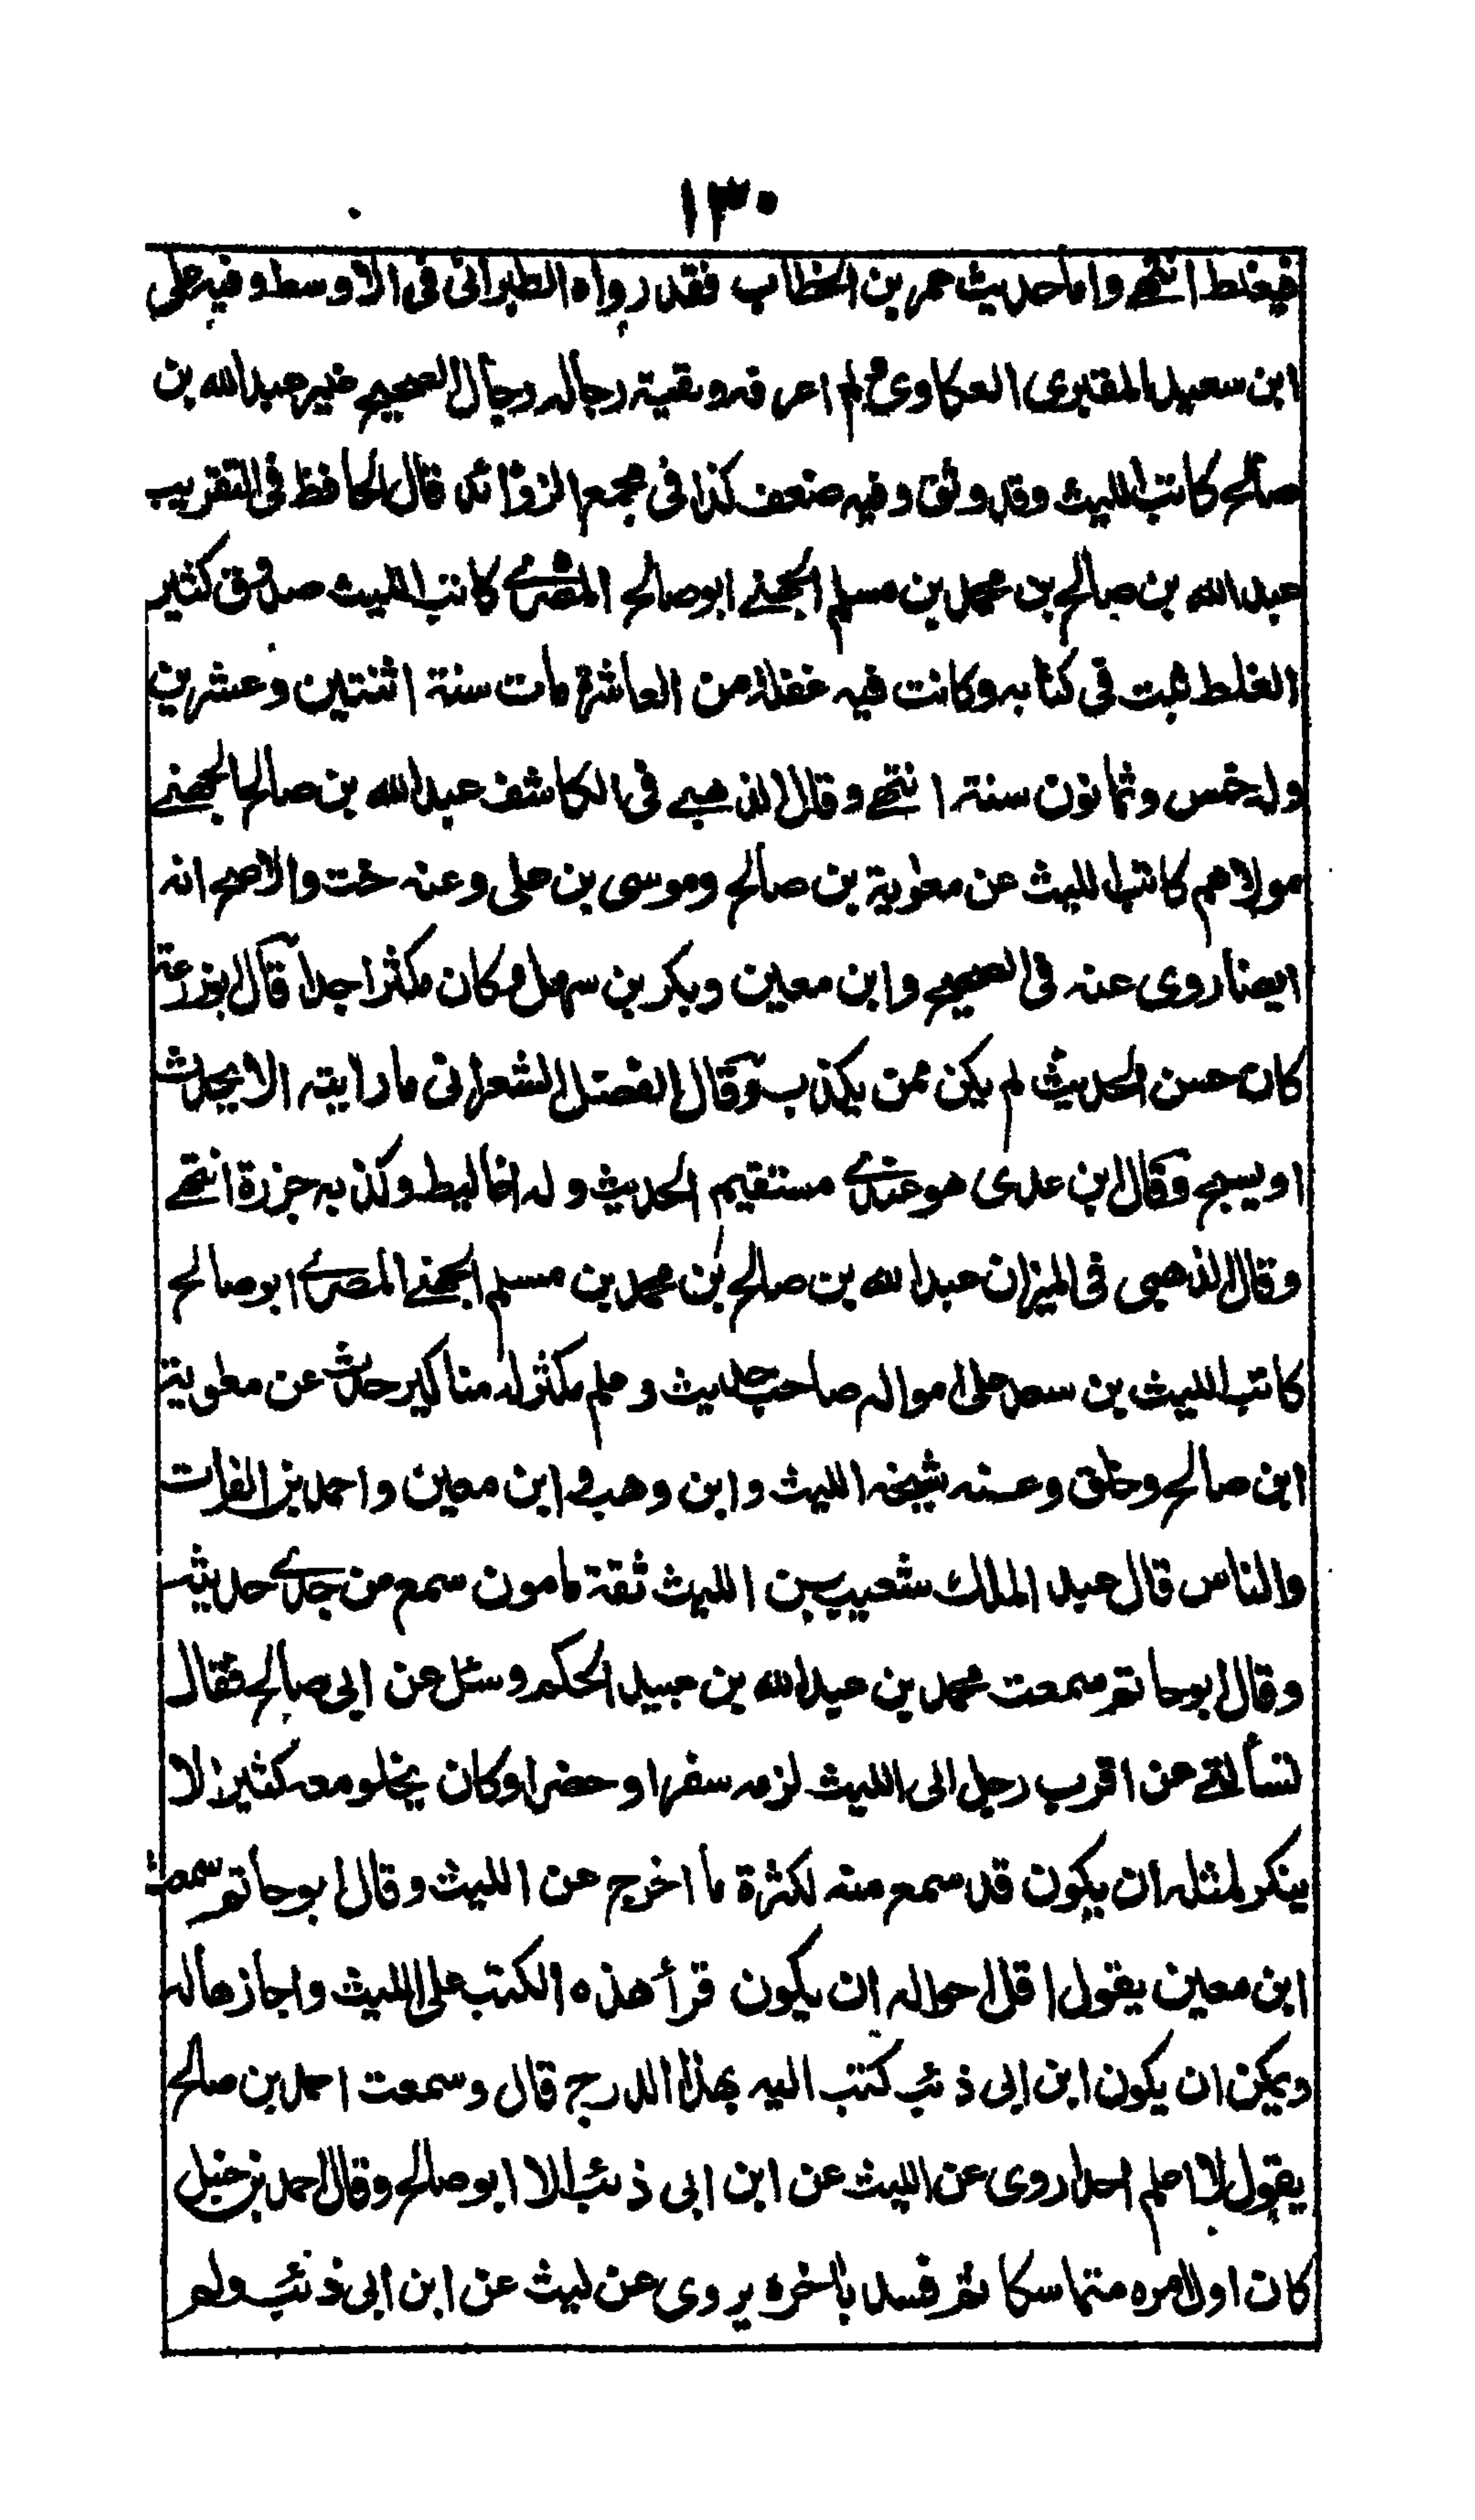 ١٣٠
فيغلط انتهى واما حديث عمر بن الخطاب فقد رواه الطبرانى فى الاوسط وفيه على
ابن سعيد المقبرى العكاوى لم اعرفه وبقية رجاله رجال الصحيح غير عبد الله بن
صالح كاتب الليث وقد وثق وفيه ضعف كذا فى مجمع الزوائد قال الحافظ فى التقريب
عبد الله بن صالح بن محمد بن مسلم الجهنى ابو صالح المصرى كاتب الليث صدوق كثير
الغلط ثبت فى كتابه وكانت فيه غفلة من العاشرة مات سنة اثنتين وعشرين
وله خمس وثمانون سنة انتهى وقال الذهبى فى الكاشف عبد الله بن صالح الجهنى
مولاهم كاتب الليث عن معوية بن صالح وموسى بن على وعنه خت والاصح انه
ايضا روى عنه فى الصحيح وابن معين وبكر بن سهل وكان مكثرا جدا قال ابو زرعة
كان حسن الحديث لم يكن ممن يكذب وقال الفضل الشعرانى ما رايته الا يحدث
او يسبح وقال ابن عدى هو عندى مستقيم الحديث وله اغاليط وكذبه جزرة انتهى
وقال الذهبى فى الميزان عبد الله بن صالح بن محمد بن مسلم الجهنى المصرى ابو صالح
كاتب الليث بن سعد على امواله صاحب حديث وعلم مكثر له مناكير حدث عن معوية
ابن صالح وخلق وعنه شيخه الليث وابن وهب وابن معين واحمد بن الفرات
والناس قال عبد الملك شعيب بن الليث ثقة مامون سمع من جدى حديثه
وقال ابو حاتم سمعت محمد بن عبد الله بن عبيد الحكم وسئل عن ابى صالح فقال
تسألنى عن اقرب رجل الى الليث لزمه سفرا وحضرا وكان يخلو معه كثيرا لا
ينكر لمثله ان يكون قد سمع منه لكثرة ما اخرج عن الليث وقال ابو حاتم سمعت
ابن معين يقول اقل احواله ان يكون قرأ هذه الكتب على الليث واجازها له
ويمكن ان يكون ابن ابى ذئب كتب اليه بهذا الدرج قال وسمعت احمد بن صالح
يقول لا اعلم احدا روى عن الليث عن ابن ابى ذئب الا ابو صالح وقال احمد بن حنبل
كان اول امره متماسكا ثم فسد باخره يروى عن ليث عن ابن ابى ذئب ولم